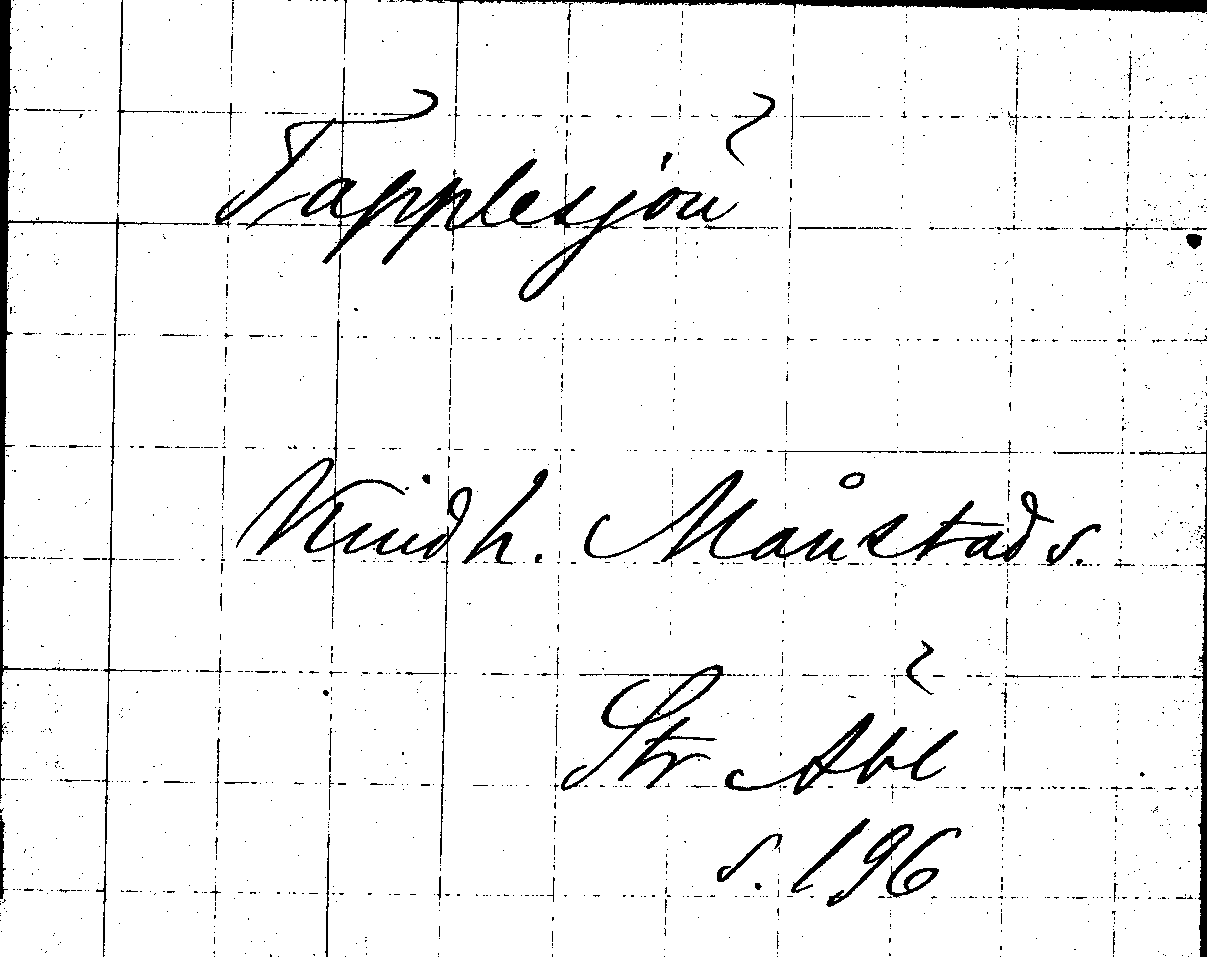 Tapplesjön
Kinds h. Månstads s.
Str Abl
s. 196